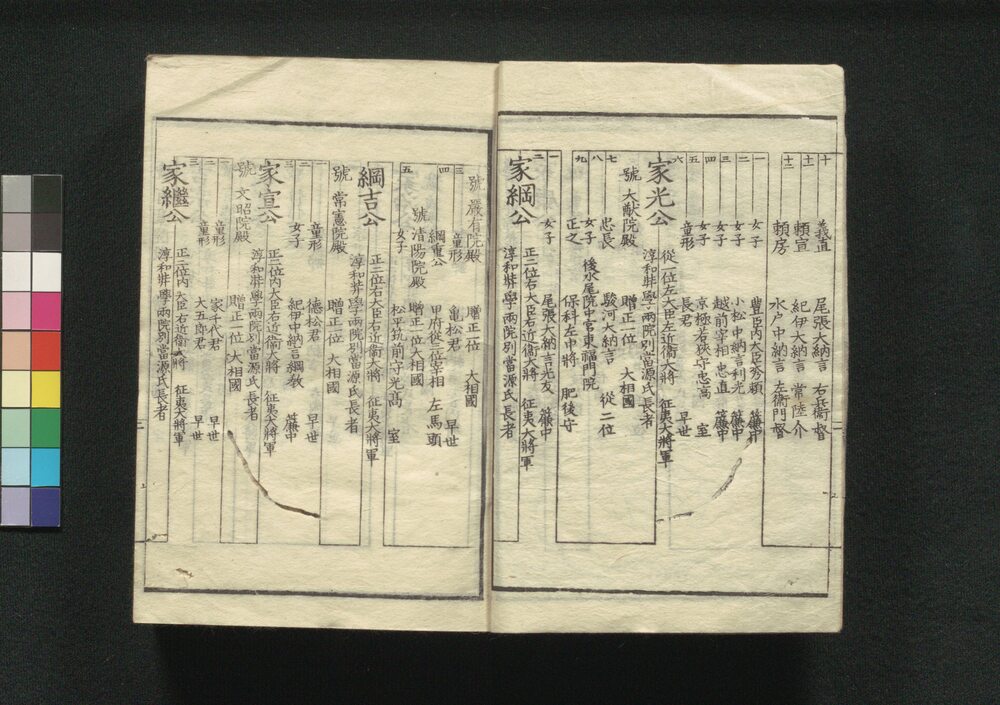 十 義直 尾張大納言 右兵衞督
十一 頼宣 紀伊大納言 常陸介
十二 頼房 水戸中納言 左衞門督
一 女子 豊臣内大臣秀頼 簾中
二 女子 小松中納言利光 簾中
三 女子 越前宰相忠直 簾中
四 女子 京極若狭守忠高 室
五 童形 長君 早世
六 家光公 從一位左大臣左近衞大將 征夷大將軍
淳和弉學兩院別當源氏長者
號 大猷院殿 贈正一位 大相國
七 忠長 駿河大納言 從二位
八 女子 後水尾院中宮東福門院
九 正之 保科左中將 肥後守
一 女子 尾張大納言光友 簾中
二 家綱公 正二位右大臣右近衞大將 征夷大將軍
淳和弉學兩院別當源氏長者
號 嚴有院殿 贈正一位 大相國
三 童形 亀松君 早世
四 綱重公 甲府從三位宰相 左馬頭
號 清陽院殿 贈正一位大相國
五 女子 松平筑前守光髙 室
綱吉公 正二位右大臣右近衞大將 征夷大將軍
淳和弉學兩院別當源氏長者
號 常憲院殿 贈正一位 大相國
一 童形 德松君 早世
二 女子 紀伊中納言綱教 簾中
三 家宣公 正二位内大臣右近衞大將 征夷大將軍
淳和弉學兩院別當源氏長者
號 文昭院殿 贈正一位 大相國
一 童形 家千代君 早世
二 童形 大五郎君 早世
三 家繼公 正二位内大臣右近衞大將 征夷大將軍
淳和弉學兩院別當源氏長者